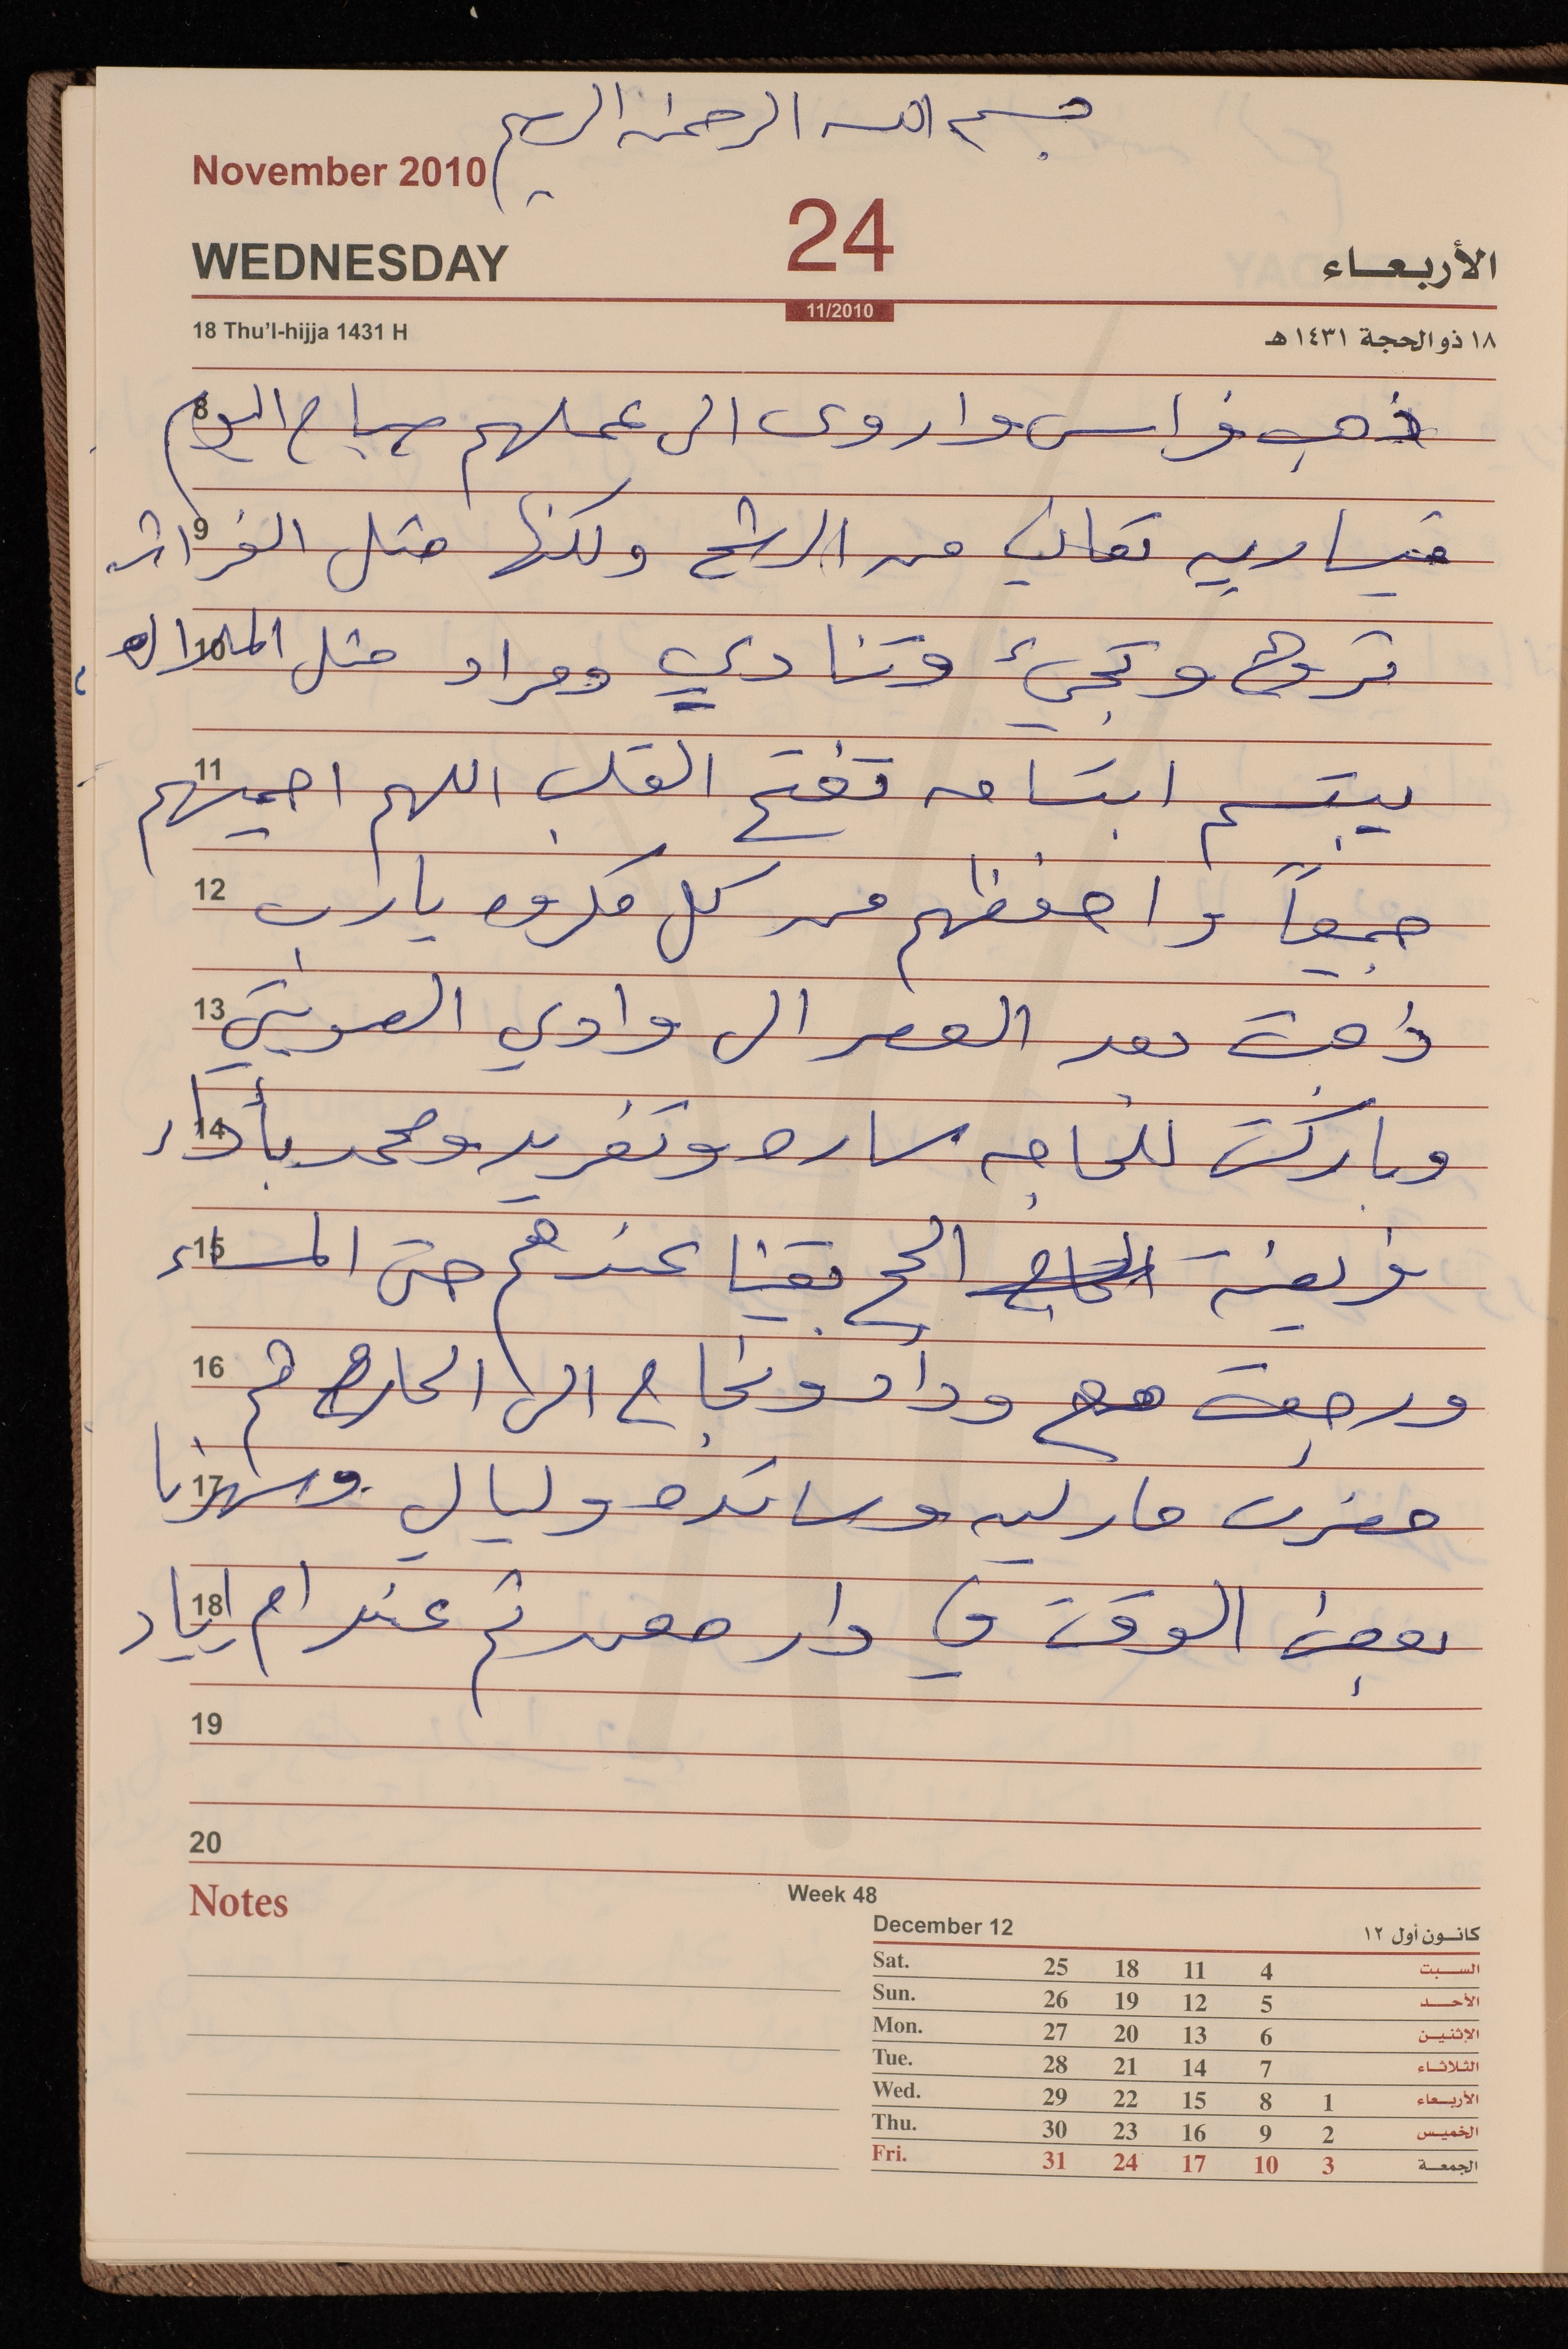 بسم الله الرحمن الرحيم
November 2010
WEDNESDAY 24 الأربعاء
11/2010
18 Thu'l-hijja 1431 H ١٨ ذو الحجة ١٤٣١ هـ
8 ذهب فراس واروى الى عملهم صباح اليوم
9 تعاني من الرشح ولكنها مثل الفراشه
10 تروح وتجيئ وتنادي ومراد مثل الملاك
11 يبتسم ابتسامه تفتح القلب اللهم احميهم
12 جميعاً واحفظهم من كل مكروه يارب
13 ذهبت بعد العصر الى وادي
14 وباركت للحاجه ساره وتغريد ومحمد بأداء
15 فريضة الحاج الحج بقينا عندهم حتى المساء
16 ورجعت مع وداد ونجاح الى الحاره ثم
17 حضرت مارلين ورائده وليالي وسهرنا
18 بعض الوقت في دار ثم عند ام اياد
19
20
Notes
Week 48
December 12 كانون أول ١٢
Sat. 25 18 11 4 السبت
Sun. 26 19 12 5 الأحد
Mon. 27 20 13 6 الإثنين
Tue. 28 21 14 7 الثلاثاء
Wed. 29 22 15 8 1 الأربعاء
Thu. 30 23 16 9 2 الخميس
Fri. 31 24 17 10 3 الجمعة